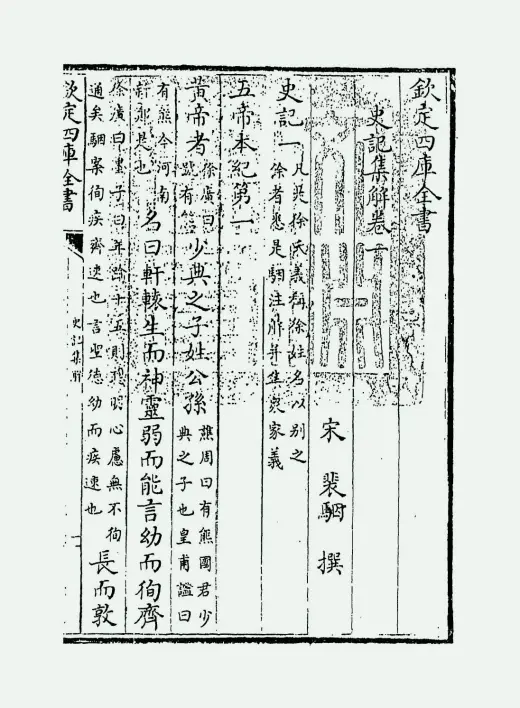 欽定四庫全書
史記集解卷一
宋 裴駰 撰
史記一
凡是徐氏義稱徐姓名以别之
徐者悉是駰注解并集衆家義
五帝本紀第一
黄帝者
徐廣曰
號有熊
少典之子姓公孫
譙周曰有熊國君少
典之子也皇甫謐曰
有熊今河南
新鄭是也
名曰軒轅生而神靈弱而能言幼而徇齊
徐廣曰墨子曰年踰十五則聰明心慮無不徇
通矣駰案徇疾齊速也言聖德幼而疾速也
長而敦
欽定四庫全書
史記集解
一